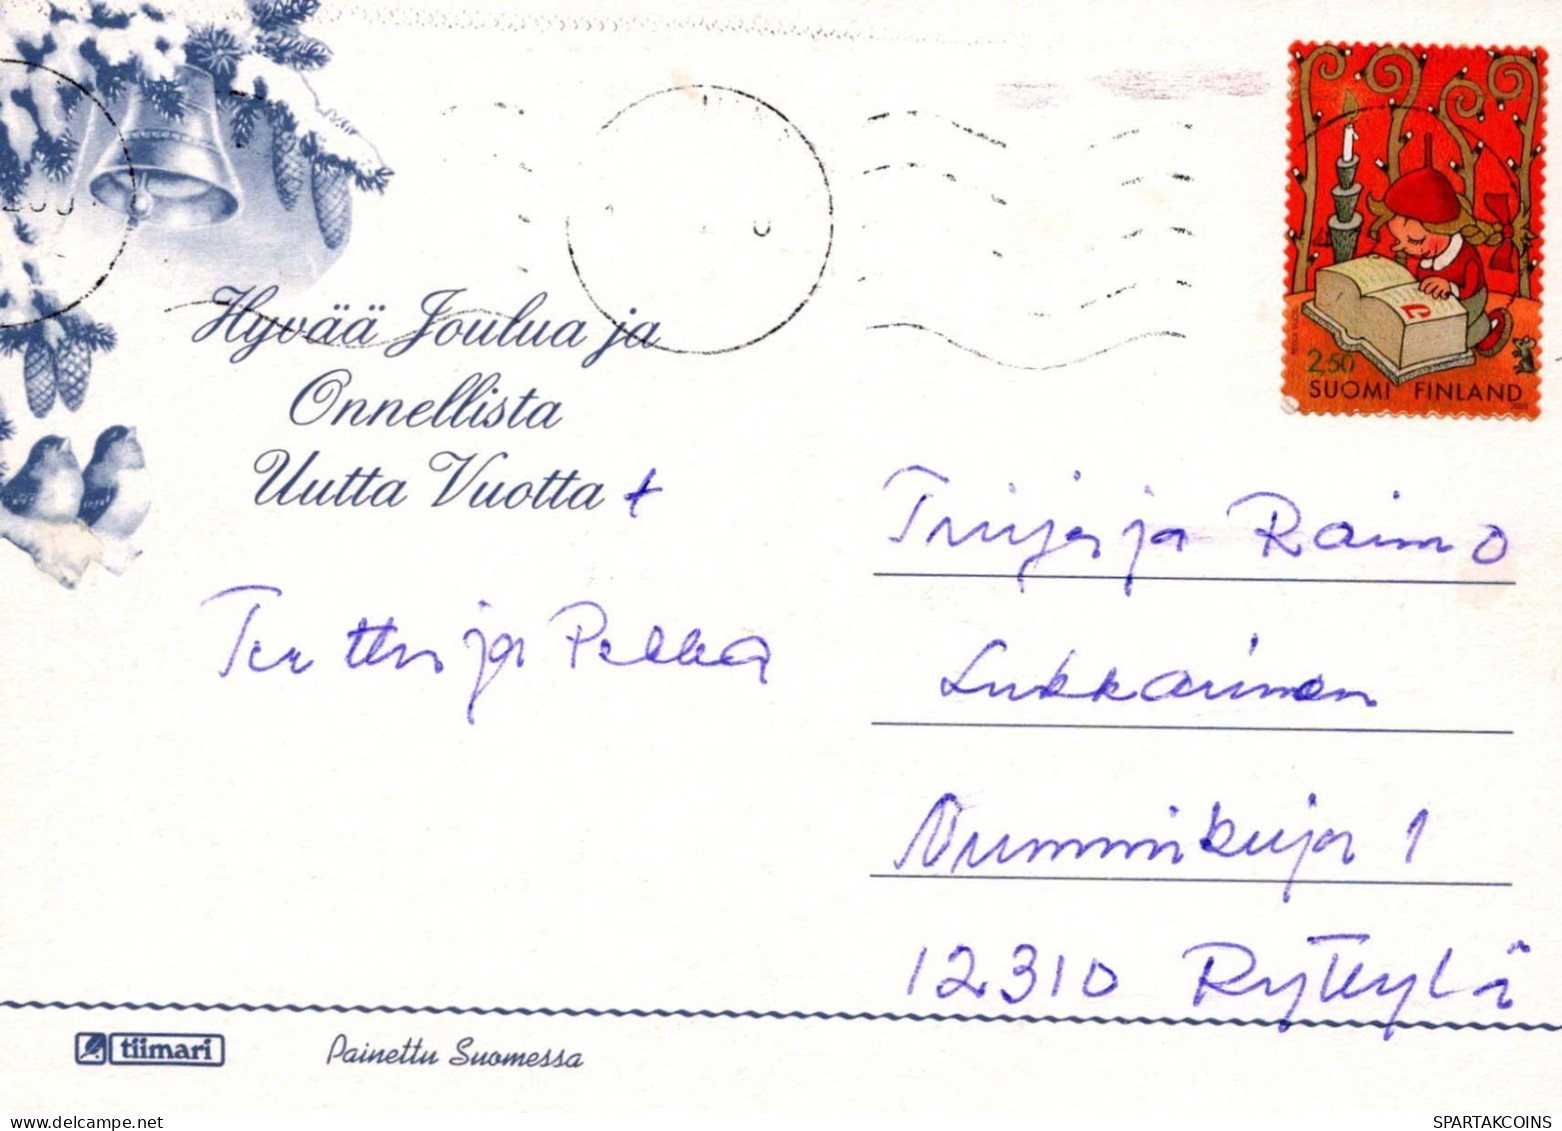 Hyvää Joulua ja
Onnellista
Uutta Vuotta +
Terttu ja Pekka
2.50
SUOMI FINLAND
ja Raimo
Lukkarinen
Nummikuja 1
12310 Ryttylä
tiimari
Painettu Suomessa
SPARTAKCOINS